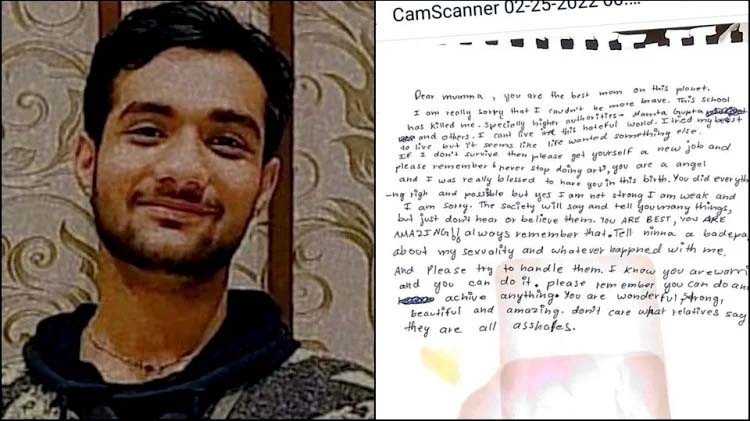 CamScanner 02-25-2022
Dear mumma, you are the best mom on this planet.
I am really sorry that I couldn't be more brave. This school
has killed me. Specially higher authorities- Mamta Gupta
and others. I cant live in this hateful world. I tried my best
to live but it seems like life wanted something else.
If I don't survive then please get yourself a new job and
please remember "never stop doing art", you are a angel
and I was really blessed to have you in this birth. You did everyth
-ng righ and possible but yes I am not strong I am weak and
I am sorry. The society will say and tell you many things,
but just don't hear or believe them. YOU ARE BEST, YOU ARE
AMAZING!! always remember that. Tell ninna a badepa
about my sexuality and whatever happned with me.
And Please try to handle them. I know you are warri
and you can do it. please remember you can do an
achive anything. You are wonderful, strong,
beautiful and amazing. don't care what relatives say
they are all assholes.